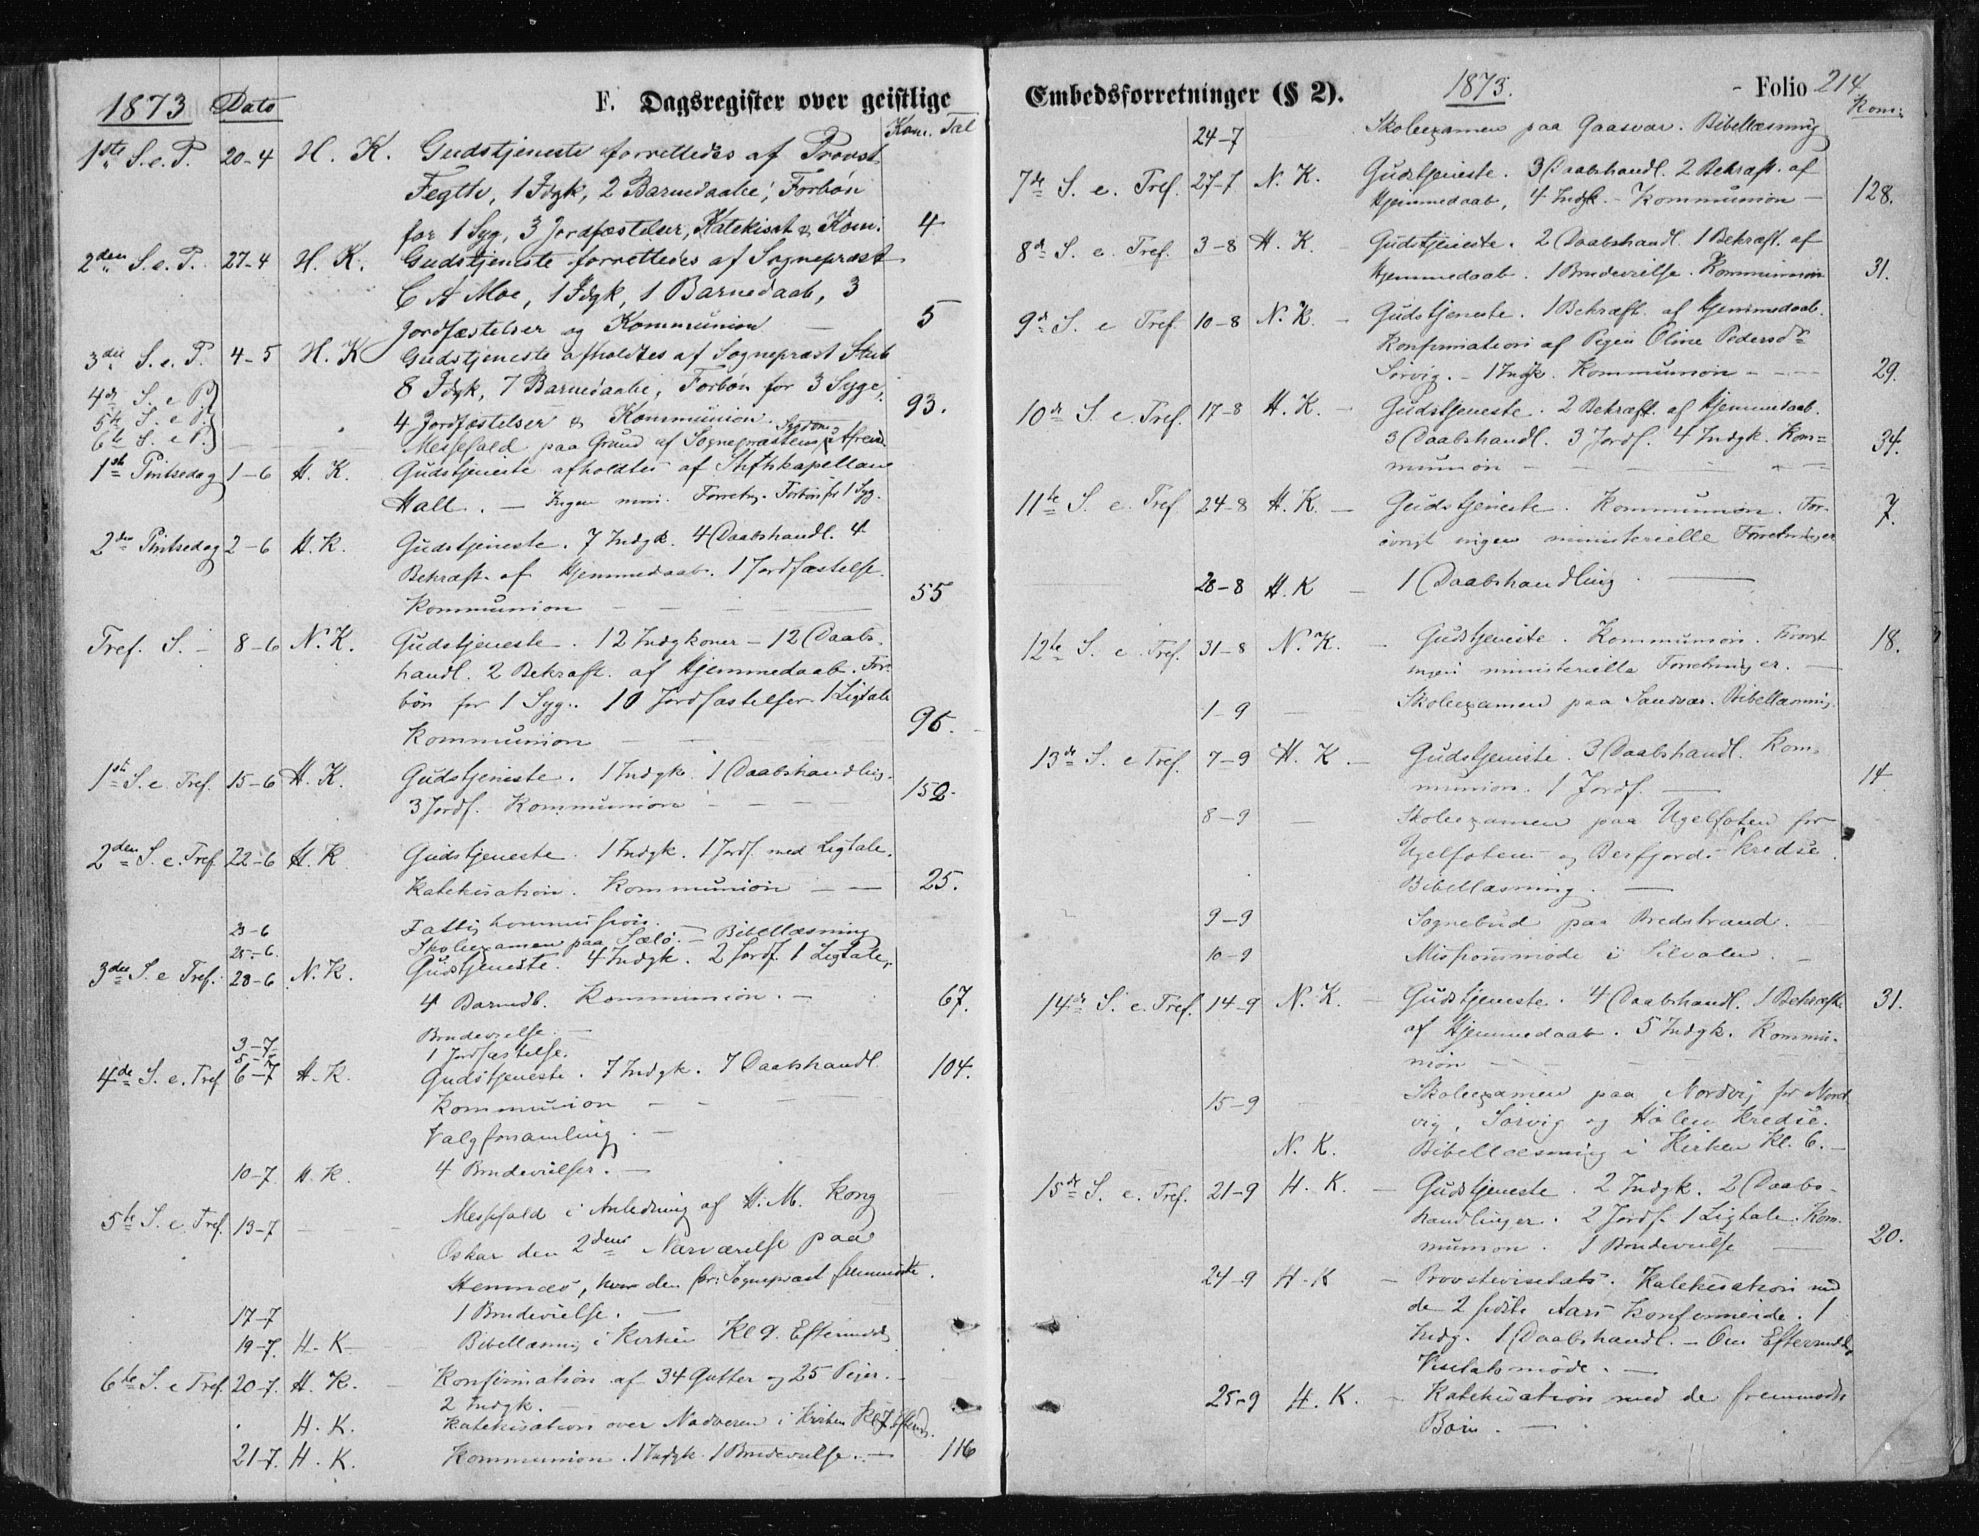 1873 Dato F. Dagsregister over geistlige
Kom. Tal
1ste S. e. P. 20-4 H. K. Gudstjeneste forrettedes af Provst
Fegth, 1 Idgk, 2 Barnedaabe, Forbøn
for 1 Syg, 3 Jordfæstelser, Katekisat & Kom. 4
2den S. e. P. 27-4 H. K. Gudstjeneste forrettedes af Sognepræst
C A Moe, 1 Idgk, 1 Barnedaab, 3
Jordfæstelser og Kommunion 5
3die S. e. P. 4-5 H. K Gudstjeneste afholdtes af Sognepræst Stub
8 Idgk, 7 Barnedaabe, Forbøn for 3 Syge,
4de S. e P.
4 Jordfæstelser & Kommunion. 93.
5te S. e P.
6te S. e P. Messefald paa Grund af Sognepræstens Sygdom
1ste Pintsedag 1-6 H. K. Gudstjeneste afholdtes af Stiftskapellan
Hall. - Ingen mini. Forretn. Forbøn for 1 Syg.
2den Pintsedag 2-6 H. K. Gudstjeneste. 7 Indgk. 4 Daabshandl. 4
Bekræft. af Hjemmedaab. 1 Jordfæstelse.
Kommunion 55
Tref. S. - 8-6 N. K. Gudstjeneste. 12 Indgkoner - 12 Daabs-
handl. 2 Bekræft. af Hjemmedaab. For-
bøn for 1 Syg. 10 Jordfæstelser. 1 Ligtale
Kommunion 96.
1ste S. e. Tref. 15-6 H. K. Gudstjeneste. 1 Indgk. 1 Daabshandling.
3 Jordf. Kommunion 152.
2den S. e. Tref. 22-6 H. K Gudstjeneste. 1 Indgk. 1 Jordf. med Ligtale.
Katekisation. Kommunion 25.
23-6 Fattigkommission.
25-6. Skoleexamen paa Sælø. - Bibellæsning
3die S. e Tref. 28-6 N. K. Gudstjeneste. 4 Indgk. 2 Jordf. 1 Ligtale,
4 Barnedb. Kommunion. - 67.
3-7 Brudevielse. -
5-7 1 Jordfæstelse.
4de S. e. Tref 6-7 H. K. Gudstjeneste. 7 Indgk. 7 Daabshandl. 104.
Kommunion
Valgforsamling. -
10-7 H. K 4 Brudevielser. -
5te S. e. Tref. 13-7 Messefald i Anledning af H. M. Kong
Oskar den 2dens Nærværelse paa
Hemnæs, hvor den Sognepræst fremmødte.
17-7 1 Brudevielse. -
19-7. H. K Bibellæsning i Kirken Kl 9. Eftermidd.
6te S. e Tref 20-7. H. K. Konfirmation af 34 Gutter og 25 Piger. -
2 Indgk. -
H. K. Katekisation over Nadveren i Kirken Kl 7 Efterm.
21-7. H. K. Kommunion. 1 Indgk. 1 Brudevielse. - 116
Embedsforretninger (§ 2). 1873. - Folio 214
Kom:
24-7 Skoleexamen paa Gaasvær. Bibellæsning
7de S. e. Tref. 27-7 N. K. Gudstjeneste. 3 Daabshandl. 2 Bekræft. af
Hjemmedaab, 4 Indgk. - Kommunion - 128.
8de S. e. Tref. 3-8 H. K. Gudstjeneste. 2 Daabshandl. 1 Bekræft. af
Hjemmedaab. 1 Brudevielse. Kommunion 31.
9de S. e Tref. 10-8 N. K. Gudstjeneste. 1 Bekræft. af Hjemmedaab.
Konfirmation af Pigen Oline Pedersdr
Sørvig. - 1 Indgk. Kommunion 29.
10de S. e. Tref. 17-8 H. K. Gudstjeneste. 2 Bekræft. af Hjemmedaab.
3 Daabshandl. 3 Jordf. 4 Indgk. Kom=
munion 34.
11te S. e. Tref 24-8 H. K. Gudstjeneste. Kommunion. For-
øvrigt ingen ministerielle Forretninger 7.
28-8 H. K 1 Daabshandling.
12te S. e. Tref. 31-8 N. K. Gudstjeneste. Kommunion. Forøvrigt
ingen ministerielle Forretninger. - 18.
1-9 Skoleexamen paa Sandvær. Bibellæsning.
13de S. e Tref. 7-9 H. K. Gudstjeneste. 3 Daabshandl. Kom-
munion. 1 Jordf. 14.
8-9 Skoleexamen paa Ugelfoten for
Ugelfotens og Bersfjord.- Kredse.
Bibellæsning. -
9-9 Sognebud paa Bredstrand.
10-9 Missionsmøde i Silvalen. -
14de S. e. Tref. 14-9 N. K. Gudstjeneste. 4 Daabshandl. 1 Bekræft. 31.
af Hjemmedaab. 5 Indgk. Kommu-
nion
15-9 Skoleexamen paa Nordvig for Nord
vig, Sørvig og Hølen Kredse.
N. K. Bibellæsning i Kirken Kl. 6. -
15de S. e. Tref. 21-9 H. K. Gudstjeneste. 2 Indgk. 2 Daabs-
handlinger. 2 Jordf. 1 Ligtale. Kom-
munion. 1 Brudevielse 20.
24-9 H. K Provstevisitats. Katekisation med
de 2 sidste Aars Konfirmerede. 1
Indg. 1 Daabshandl. - Om Eftermidd.
Visitatsmøde. -
25-9 H. K. Katekisation med de fremmødte
Børn. -